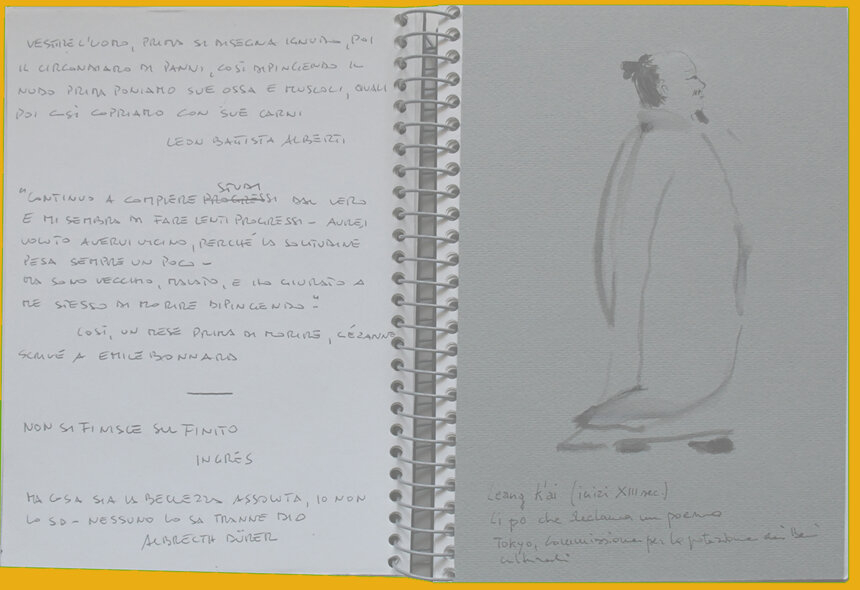 VESTIRE L'UOMO, PRIMA SI DISEGNA IGNUDO, POI
IL CIRCONDIARO DI PANNI, COSÌ DIPINGENDO IL
NUDO PRIMA PONIAMO SUE OSSA E MUSCOLI, QUALI
POI COSÌ COPRIAMO CON SUE CARNI
LEON BATTISTA ALBERTI
STUDI
"CONTINUO A COMPIERE PROGRESSI DAL VERO
E MI SEMBRA DI FARE LENTI PROGRESSI - AVREI
VOLUTO AVERVI VICINO, PERCHÉ LA SOLITUDINE
PESA SEMPRE UN POCO -
MA SONO VECCHIO, MALATO, E HO GIURATO A
ME STESSO DI MORIRE DIPINGENDO"
COSÌ, UN MESE PRIMA DI MORIRE, CÉZANNE
SCRIVE A EMILE BONNARD
NON SI FINISCE SUL FINITO
INGRES
MA COSA SIA LA BELLEZZA ASSOLUTA, IO NON
LO SO - NESSUNO LO SA TRANNE DIO
ALBRECTH DÜRER
Leang K'ai (inizi XIII sec.)
Li po che declama un poema
Tokyo, Commissione per la protezione dei Beni
culturali